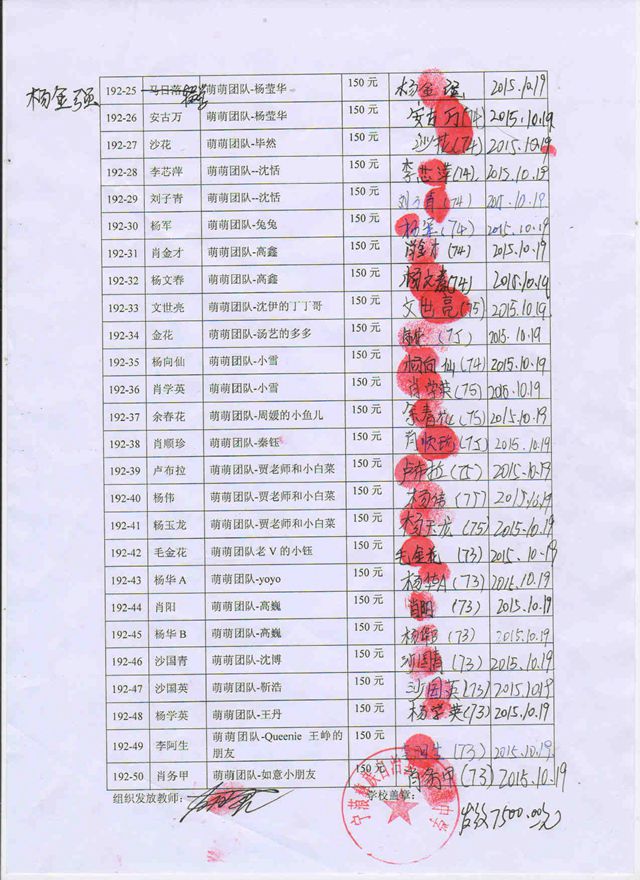 杨金强
192-25 马日落 萌萌团队-杨莹华 150 元 杨金强 2015.10.19
192-26 安古万 萌萌团队-杨莹华 150 元 安古万(74) 2015.10.19
192-27 沙花 萌萌团队-毕然 150 元 沙花(74) 2015.10.19
192-28 李芯萍 萌萌团队--沈恬 150 元 李芯萍(74) 2015.10.19
192-29 刘子青 萌萌团队--沈恬 150 元 刘子青(74) 2015.10.19
192-30 杨军 萌萌团队-兔兔 150 元 杨军(74) 2015.10.19
192-31 肖金才 萌萌团队-高鑫 150 元 肖金才(74) 2015.10.19
192-32 杨文春 萌萌团队-高鑫 150 元 杨文春(74) 2015.10.19
192-33 文世亮 萌萌团队-沈伊的丁丁哥 150 元 文世亮(75) 2015.10.19
192-34 金花 萌萌团队-汤艺的多多 150 元 金花(75) 2015.10.19
192-35 杨向仙 萌萌团队-小雪 150 元 杨向仙(74) 2015.10.19
192-36 肖学英 萌萌团队-小雪 150 元 肖学英(75) 2015.10.19
192-37 余春花 萌萌团队-周媛的小鱼儿 150 元 余春花(75) 2015.10.19
192-38 肖顺珍 萌萌团队-秦钰 150 元 肖顺珍(75) 2015.10.19
192-39 卢布拉 萌萌团队-贾老师和小白菜 150 元 卢布拉(75) 2015.10.19
192-40 杨伟 萌萌团队-贾老师和小白菜 150 元 杨伟(75) 2015.10.19
192-41 杨玉龙 萌萌团队-贾老师和小白菜 150 元 杨玉龙(75) 2015.10.19
192-42 毛金花 萌萌团队老 V 的小钰 150 元 毛金花(73) 2015.10.19
192-43 杨华 A 萌萌团队-yoyo 150 元 杨华A(73) 2015.10.19
192-44 肖阳 萌萌团队-高巍 150 元 肖阳(73) 2015.10.19
192-45 杨华 B 萌萌团队-高巍 150 元 杨华B(73) 2015.10.19
192-46 沙国青 萌萌团队-沈博 150 元 沙国青(73) 2015.10.19
192-47 沙国英 萌萌团队-靳浩 150 元 沙国英(73) 2015.10.19
192-48 杨学英 萌萌团队-王丹 150 元 杨学英(73) 2015.10.19
192-49 李阿生 萌萌团队-Queenie 王峥的 150 元 李阿生(73) 2015.10.19
朋友
192-50 肖务甲 萌萌团队-如意小朋友 150 元 肖务甲(73) 2015.10.19
组织发放教师: 学校盖章:
宁蒗彝族自治 中学
发放7500.00元